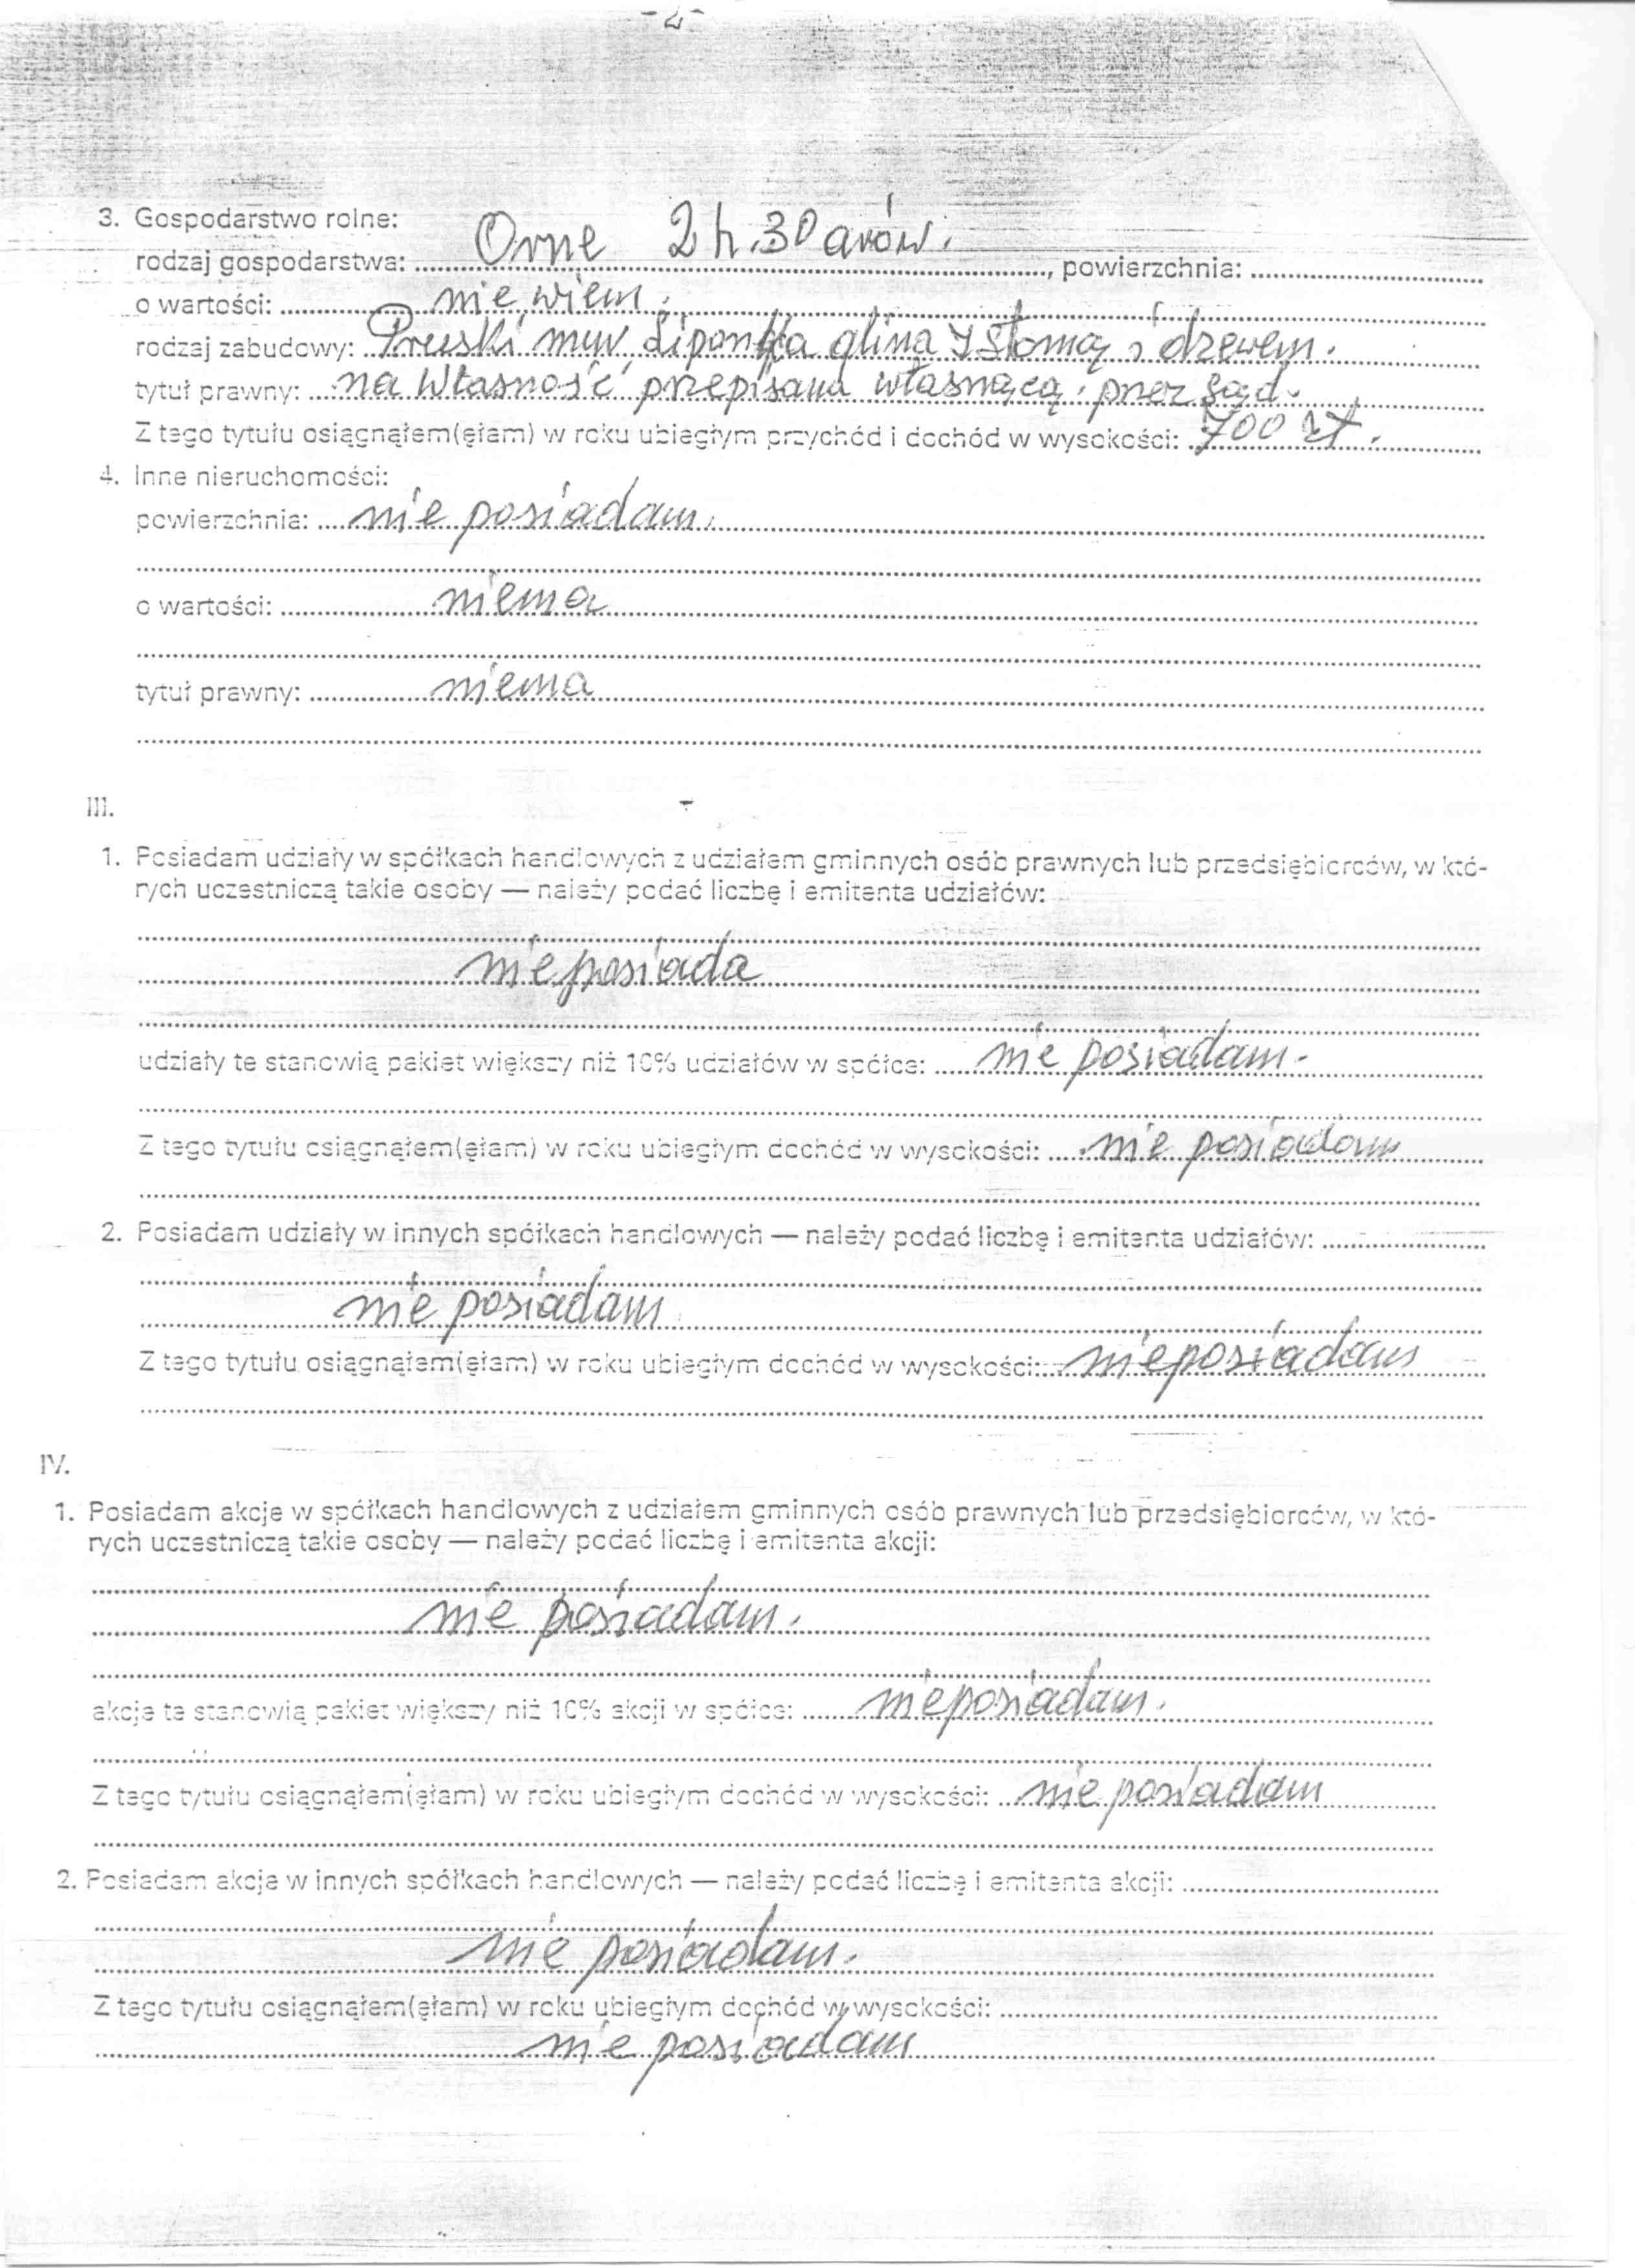 - 2 -
3. Gospodarstwo rolne:
rodzaj gospodarstwa: Orne 2 h. 30 arów. , powierzchnia:
o wartości: nie wiem.
rodzaj zabudowy: Pruski mur gliną y słomą i drzewem.
tytuł prawny: na Własność przepisana własnącą, przez Sąd.
Z tego tytułu osiągnąłem(ęłam) w roku ubiegłym przychód i dochód w wysokości: 700 zł.
4. Inne nieruchomości:
powierzchnia: nie posiadam.
o wartości: niema
tytuł prawny: niema
III.
1. Posiadam udziały w spółkach handlowych z udziałem gminnych osób prawnych lub przedsiębiorców, w któ-
rych uczestniczą takie osoby — należy podać liczbę i emitenta udziałów:
nie posiada
udziały te stanowią pakiet większy niż 10% udziałów w spółce: nie posiadam.
Z tego tytułu osiągnąłem(ęłam) w roku ubiegłym dochód w wysokości: nie posiadam
2. Posiadam udziały w innych spółkach handlowych — należy podać liczbę i emitenta udziałów:
nie posiadam
Z tego tytułu osiągnąłem(ęłam) w roku ubiegłym dochód w wysokości: nieposiadam
IV.
1. Posiadam akcje w spółkach handlowych z udziałem gminnych osób prawnych lub przedsiębiorców, w któ-
rych uczestniczą takie osoby — należy podać liczbę i emitenta akcji:
nie posiadam.
akcje te stanowią pakiet większy niż 10% akcji w spółce: nieposiadam.
Z tego tytułu osiągnąłem(ęłam) w roku ubiegłym dochód w wysokości: nie posiadam
2. Posiadam akcje w innych spółkach handlowych — należy podać liczbę i emitenta akcji:
nie posiadam.
Z tego tytułu osiągnąłem(ęłam) w roku ubiegłym dochód w wysokości:
nie posiadam